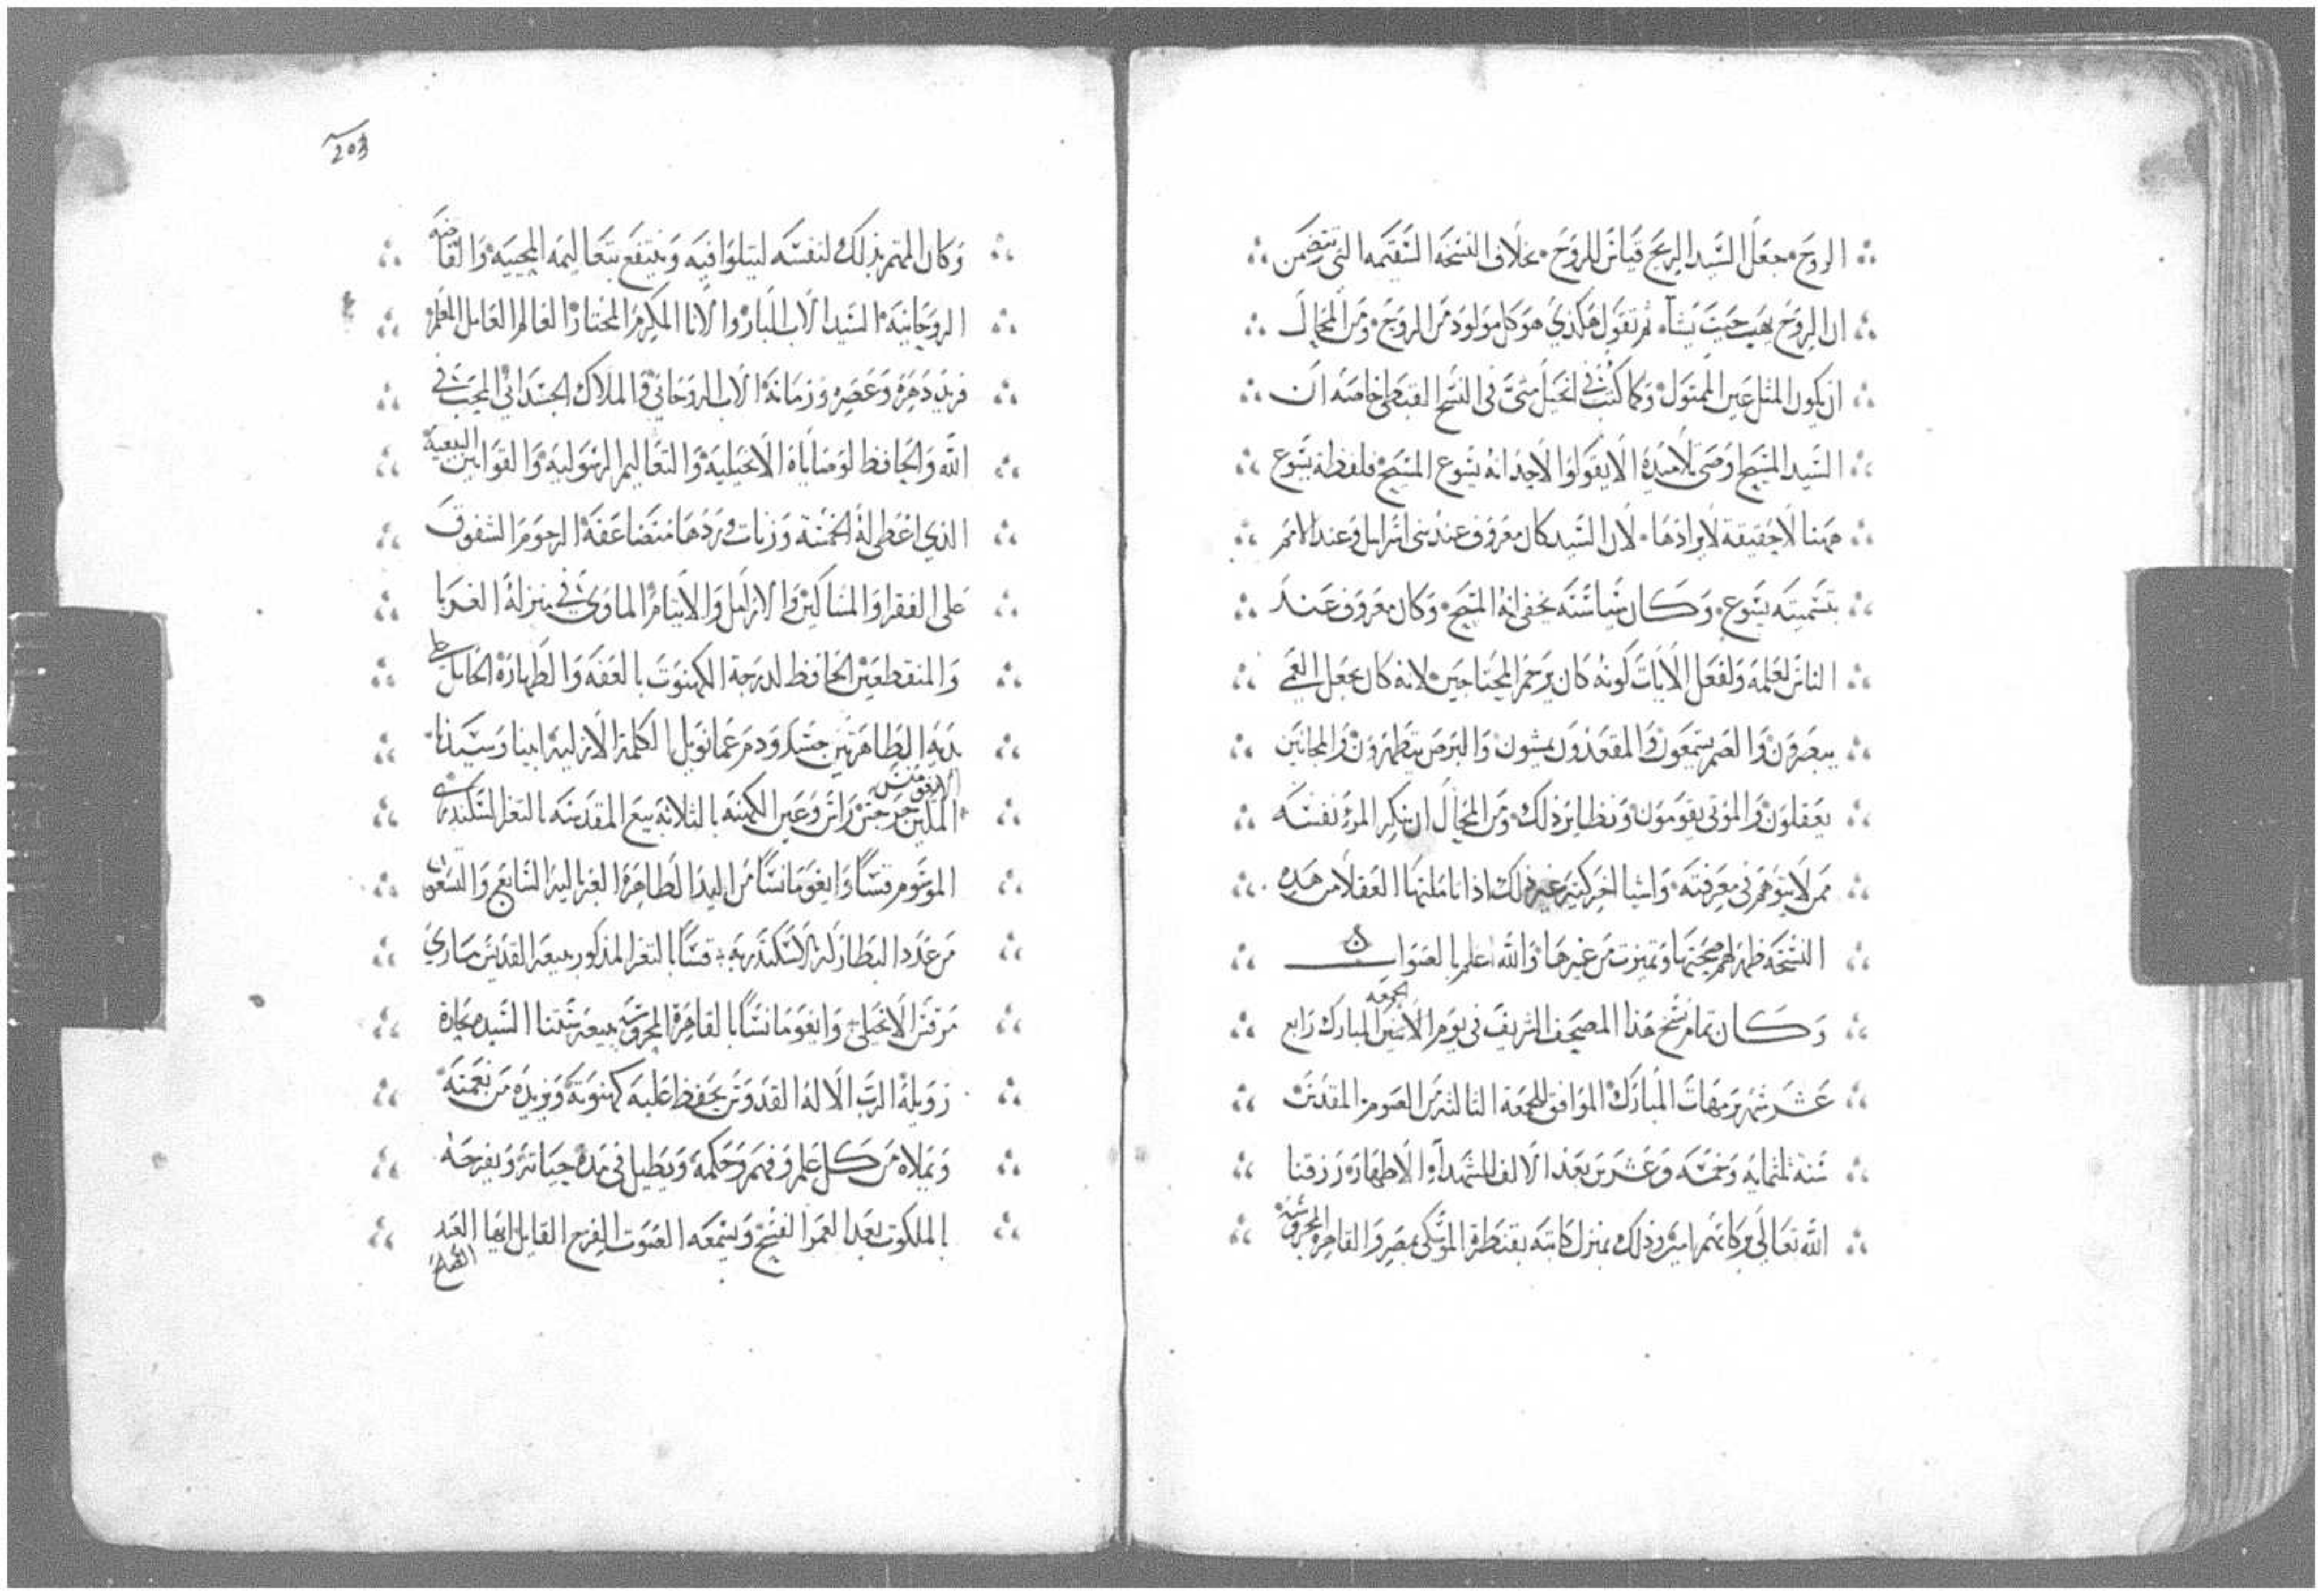 الروح فجعل السيد الريح قياس للروح بخلاف النسخة السقيمه التي تتضمن
ان الروح يهب حيث يشآ ثم تقول هكذي هو كل مولود من الروح ومن المحال
ان يكون المثل عين الممثول وكما كتب في انجيل متي في النسخ القبطي خاصه ان
السيد المسيح اوصي تلاميده الا يقولوا لاحد انه يسوع المسيح فلفظة يسوع
ههنا لا حقيقة لايرادها لان السيد كان معروف عند بني اسرايل وعند الامم
بتسميته يسوع وكان سياسته يخفي انه المسيح وكان معروف عند
الناس لعلمه ولفعل الايات كونه كان يرحم المحتاجين لانه كان يجعل العمي
يبصرون والصم يسمعون والمقعدون يمشون والبرص يتطهرون والمجانين
يعقلون والموتي يقومون ونظاير ذلك ومن المحال ان ينكر المرء نفسه
ممن لا يتوهم في معرفته واشيا اخر كثيره غير ذلك اذا تاملتها العقلا من هده
النسخه ظهر لهم صحتها وتميزت من غيرها والله اعلم بالصواب
وكان تمام نسخ هذا المصحف الشريف في يوم الاثنين الجمعه المبارك رابع
عشر شهر برمهات المبارك الموافق للجمعة الثالثه من الصوم المقدس
سنة ثلثمايه وخمسه وعشرين بعد الالف للشهدآء الاطهار رزقنا
الله تعالي بركاتهم امين وذلك بمنزل كاتبه بقنطرة الموسكي بمصر والقاهره المحروسه
203
وكان المهتم بذلك لنفسه ليتلوا فيه وينتفع بتعاليمه المحييه والفاضه
الروحانيه السيد الاب البار والانا المكرم المختار العالم العامل المعلم
فريد دهره وعصره وزمانه الاب الروحاني والملاك الجسداني المحب في
الله والحافظ لوصاياه الانجيليه والتعاليم الرسوليه والقوانين البيعيه
الذي اعطي له الخمسة وزنات وردها متضاعفه الرحوم الشفوق
علي الفقرا والمساكين والارامل والايتام الماوي في منزله الغربا
والمنقطعين الحافظ لدرجة الكهنوت بالعفه والطهاره الحامل علي
يديه الطاهرتين جسد ودم عمانويل الكلمة الازليه ابينا وسيدنا
المدين جرجس راس وعين الكهنه بالثلاثة بيع المقدسه بالثغر السكندري
الموسوم قسًا وايغومانسًا من اليد الطاهره الغبراليه السابع والتسعون
من عدد البطاركه الاسكندريه قسًا بالثغر المذكور ببيعة القديس ماري
مرقس الانجيلي وايغومانسًا بالقاهرة المحروسه ببيعة ستنا السيده بحارة
زويلة الرب الاله القدوس يحفظ عليه كهنوته ويزيده من نعمته
ويملاه من كل علم وفهم وحكمه ويطيل في مدة حياته ويفرحه
بالملكوت بعد العمر الفسيح ويسمعه الصوت الفرح القايل ايها العبد الصالح